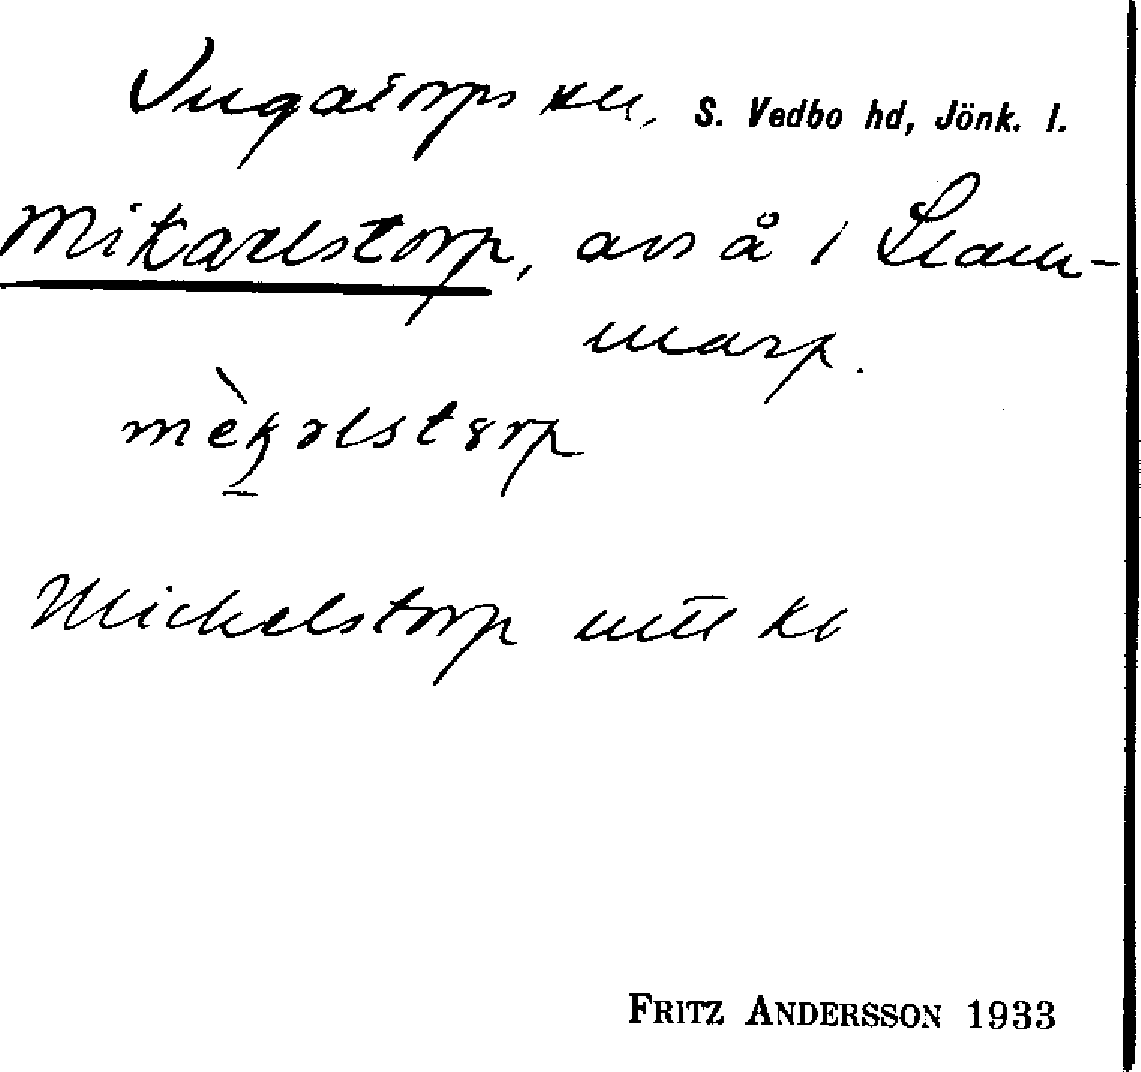 Ingatorps sn, S. Vedbo hd, Jönk. l.
Mikaelstorp, avs å i Slam-
marp.
mèkəlstɔrp
Mickelstorp utt kb
FRITZ ANDERSSON 1933